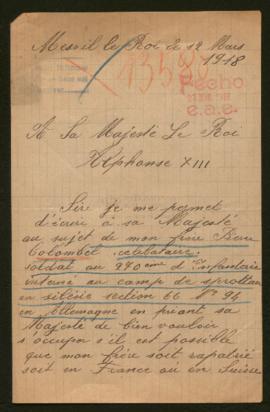 Mesnil le Roi le 12 Mars
1918
13588
Fecho
e.a.e.
A Sa Majesté Le Roi
Alphonse XIII
Sire je me permet
d'écrire à sa Majesté
au sujet de mon frère
Colombet célibataire
soldat au 270eme d'Infanterie
interné au camp de sprottau
en silésie section 66 No 94
en Allemagne en priant sa
Majesté de bien vouloir
s'occuper s'il est possible
que mon frère soit rapatrié
soit en France ou en Suisse